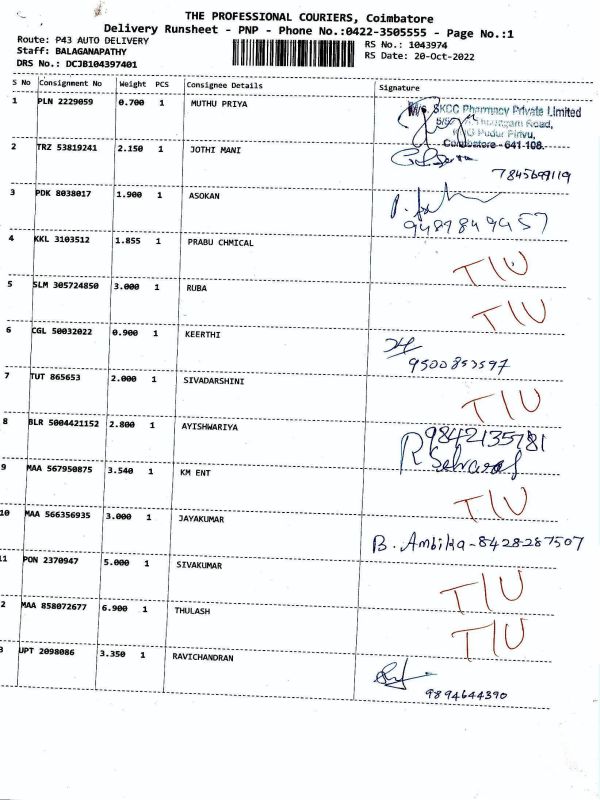 THE PROFESSIONAL COURIERS, Coimbatore
Delivery Runsheet - PNP - Phone No.:0422-3505555 - Page No.:1
Route: P43 AUTO DELIVERY
RS No.: 1043974
Staff: BALAGANAPATHY
RS Date: 20-Oct-2022
DRS No.: DCJB104397401
S No Consignment No Weight PCS Consignee Details Signature
1 PLN 2229059 0.700 1 MUTHU PRIYA
M/s. SKCC Pharmacy Private Limited
Road,
Pudur Pirivu,
Coimbatore - 641-108.
2 TRZ 53819241 2.150 1 JOTHI MANI
3 PDK 8038017 1.900 1 ASOKAN
4 KKL 3103512 1.855 1 PRABU CHMICAL T/U
5 SLM 305724850 3.000 1 RUBA T/U
6 CGL 50032022 0.900 1 KEERTHI
7 TUT 865653 2.000 1 SIVADARSHINI T/U
8 BLR 5004421152 2.800 1 AYISHWARIYA
R Selvaraj
9 MAA 567950875 3.540 1 KM ENT T/U
10 MAA 566356935 3.000 1 JAYAKUMAR B. Ambika-8428287507
11 PON 2370947 5.000 1 SIVAKUMAR T/U
2 MAA 858072677 6.900 1 THULASH T/U
3 UPT 2098086 3.350 1 RAVICHANDRAN
9894644390